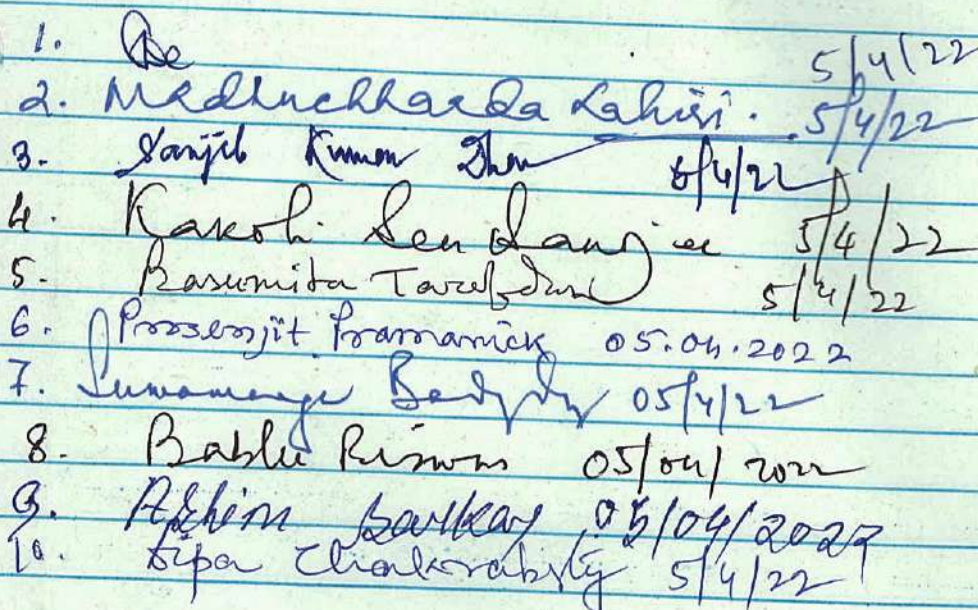 1. 5/4/22
2. Madhuchhanda Lahiri. 5/4/22
3. Sanjib Kumar Dhar 5/4/22
4. Kakoli Sen Banerjee 5/4/22
5. Basumita Tarafdar 5/4/22
6. Prosenjit Pramanick 05.04.2022
7. 05/4/22
8. Bablu Biswas 05/04/2022
9. Ashim Sarkar 05/04/2022
10. Dipa Chakraborty 5/4/22